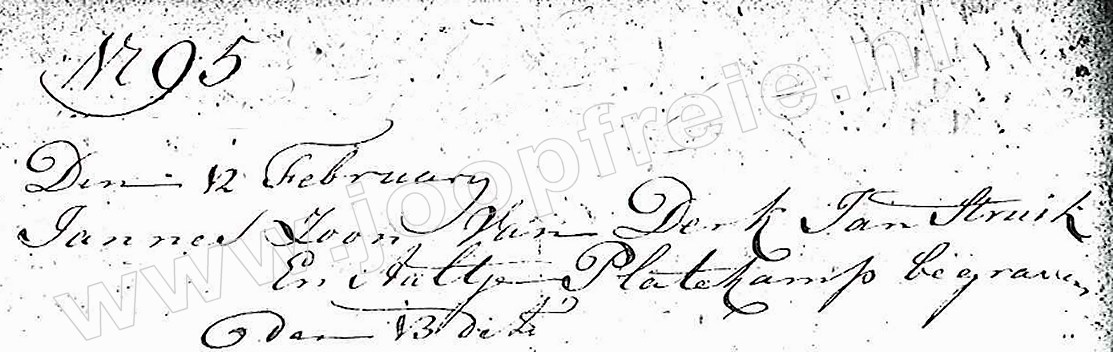 1795
Den 12 February
Jannes Zoon Van Derk Jan Struik
En Aaltje Platekamp begraven
den 13 dito
www.joopfreie.nl